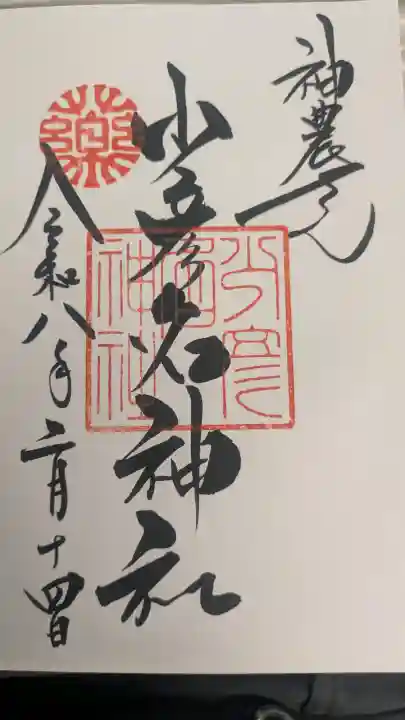 神農さん
少彦名神社
令和八年二月十四日
薬
少彦名神社